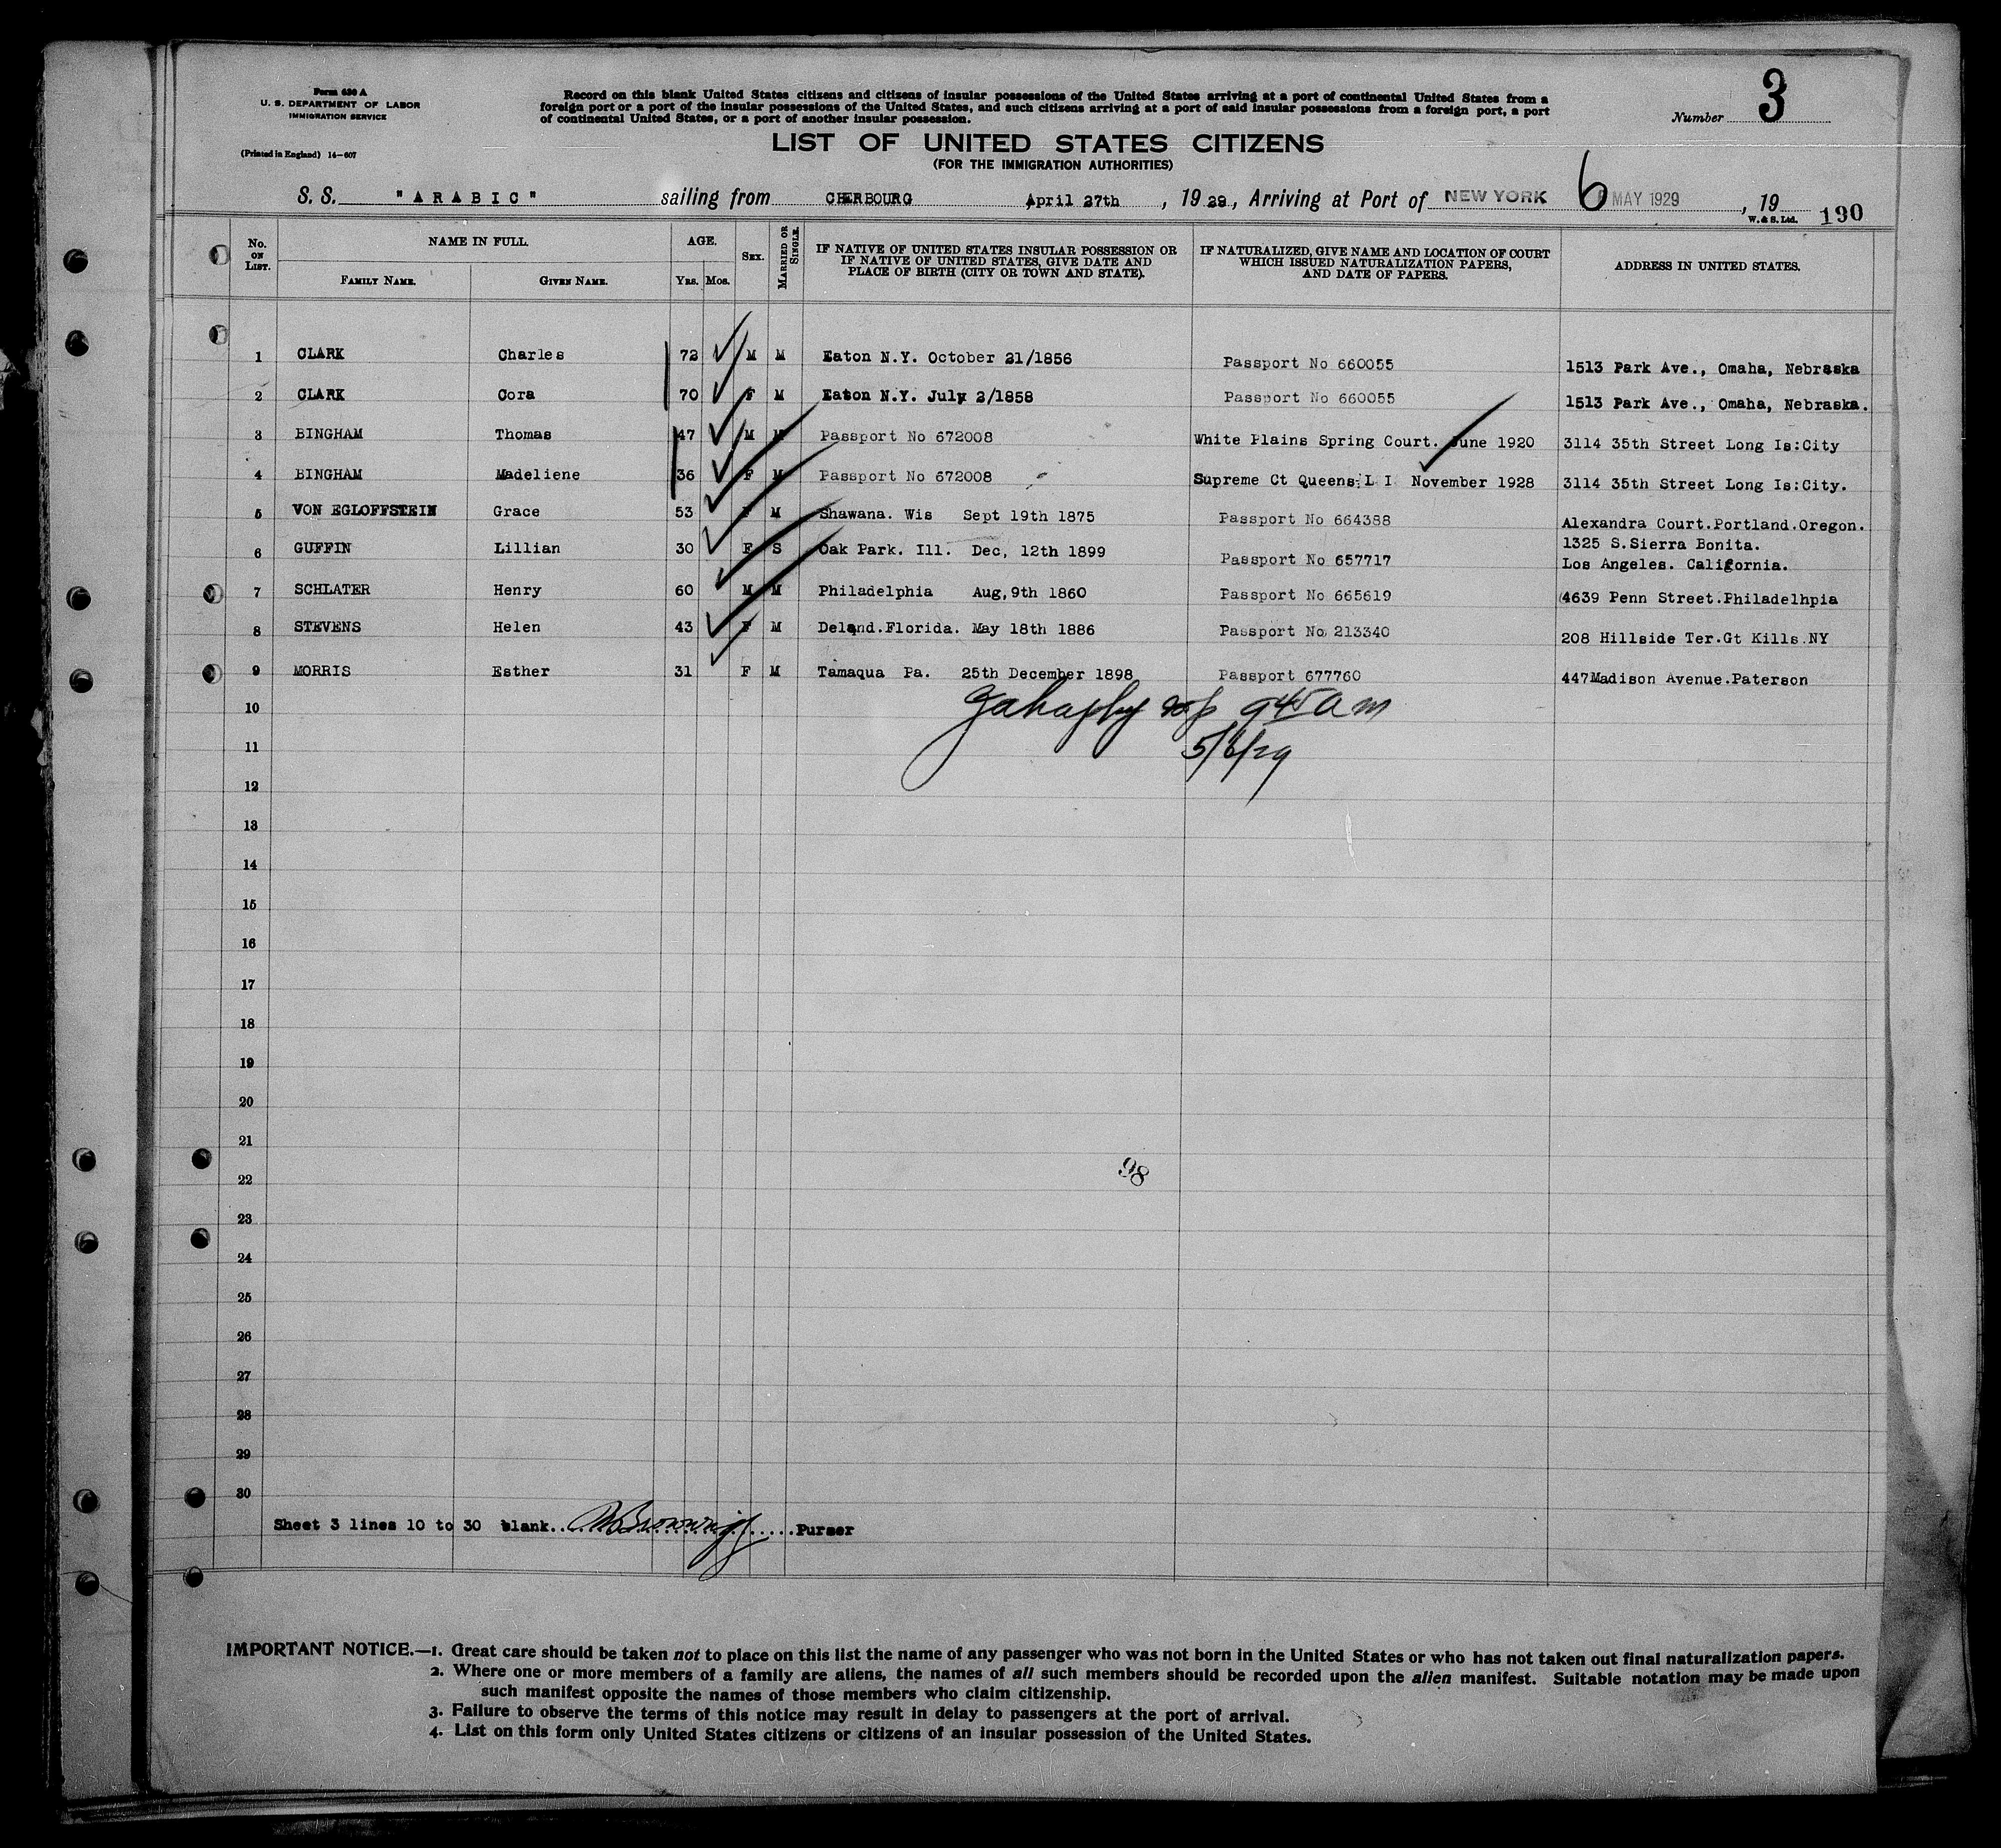 Form 630 A
U. S. DEPARTMENT OF LABOR
IMMIGRATION SERVICE
(Printed in England) 14—607
Record on this blank United States citizens and citizens of insular possessions of the United States arriving at a port of continental United States from a
foreign port or a port of the insular possessions of the United States, and such citizens arriving at a port of said insular possessions from a foreign port, a port
of continental United States, or a port of another insular possession.
Number 3
LIST OF UNITED STATES CITIZENS
(FOR THE IMMIGRATION AUTHORITIES)
S. S. "ARABIC" sailing from CHERBOURG April 27th, 1929, Arriving at Port of NEW YORK 6 MAY 1929, 19
W. & S. Ltd. 190
No. ON LIST. NAME IN FULL. FAMILY NAME. GIVEN NAME. AGE. YRS. MOS. SEX. MARRIED OR SINGLE. IF NATIVE OF UNITED STATES INSULAR POSSESSION OR IF NATIVE OF UNITED STATES, GIVE DATE AND PLACE OF BIRTH (CITY OR TOWN AND STATE). IF NATURALIZED, GIVE NAME AND LOCATION OF COURT WHICH ISSUED NATURALIZATION PAPERS, AND DATE OF PAPERS. ADDRESS IN UNITED STATES.
1 CLARK Charles 72 M M Eaton N.Y. October 21/1856 Passport No 660055 1513 Park Ave., Omaha, Nebraska
2 CLARK Cora 70 F M Eaton N.Y. July 2/1858 Passport No 660055 1513 Park Ave., Omaha, Nebraska.
3 BINGHAM Thomas 47 M M Passport No 672008 White Plains Spring Court. June 1920 3114 35th Street Long Is:City
4 BINGHAM Madeliene 36 F M Passport No 672008 Supreme Ct Queens L I November 1928 3114 35th Street Long Is:City.
5 VON EGLOFFSTEIN Grace 53 F M Shawana. Wis Sept 19th 1875 Passport No 664388 Alexandra Court.Portland.Oregon.
6 GUFFIN Lillian 30 F S Oak Park. Ill. Dec, 12th 1899 Passport No 657717 1325 S.Sierra Bonita.
Los Angeles. California.
7 SCHLATER Henry 60 M M Philadelphia Aug,9th 1860 Passport No 665619 4639 Penn Street.Philadelhpia
8 STEVENS Helen 43 F M Deland.Florida. May 18th 1886 Passport No 213340 208 Hillside Ter.Gt Kills.NY
9 MORRIS Esther 31 F M Tamaqua Pa. 25th December 1898 Passport 677760 447Madison Avenue.Paterson
10 945 am
11 5/6/29
12
13
14
15
16
17
18
19
20
21
22 98
23
24
25
26
27
28
29
30
Sheet 3 lines 10 to 30 blank. Browning Purser
IMPORTANT NOTICE.—1. Great care should be taken not to place on this list the name of any passenger who was not born in the United States or who has not taken out final naturalization papers.
2. Where one or more members of a family are aliens, the names of all such members should be recorded upon the alien manifest. Suitable notation may be made upon
such manifest opposite the names of those members who claim citizenship.
3. Failure to observe the terms of this notice may result in delay to passengers at the port of arrival.
4. List on this form only United States citizens or citizens of an insular possession of the United States.